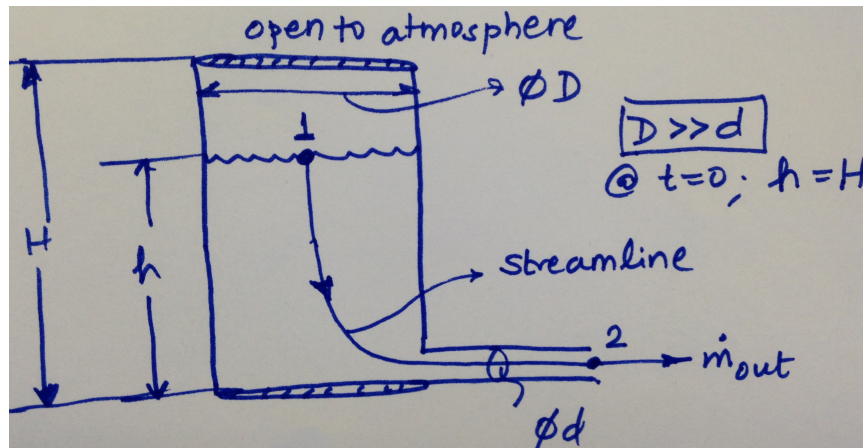 open to atmosphere
ϕD
1
D >> d
@ t=0; h=H
H
h
streamline
2
ṁout
ϕd